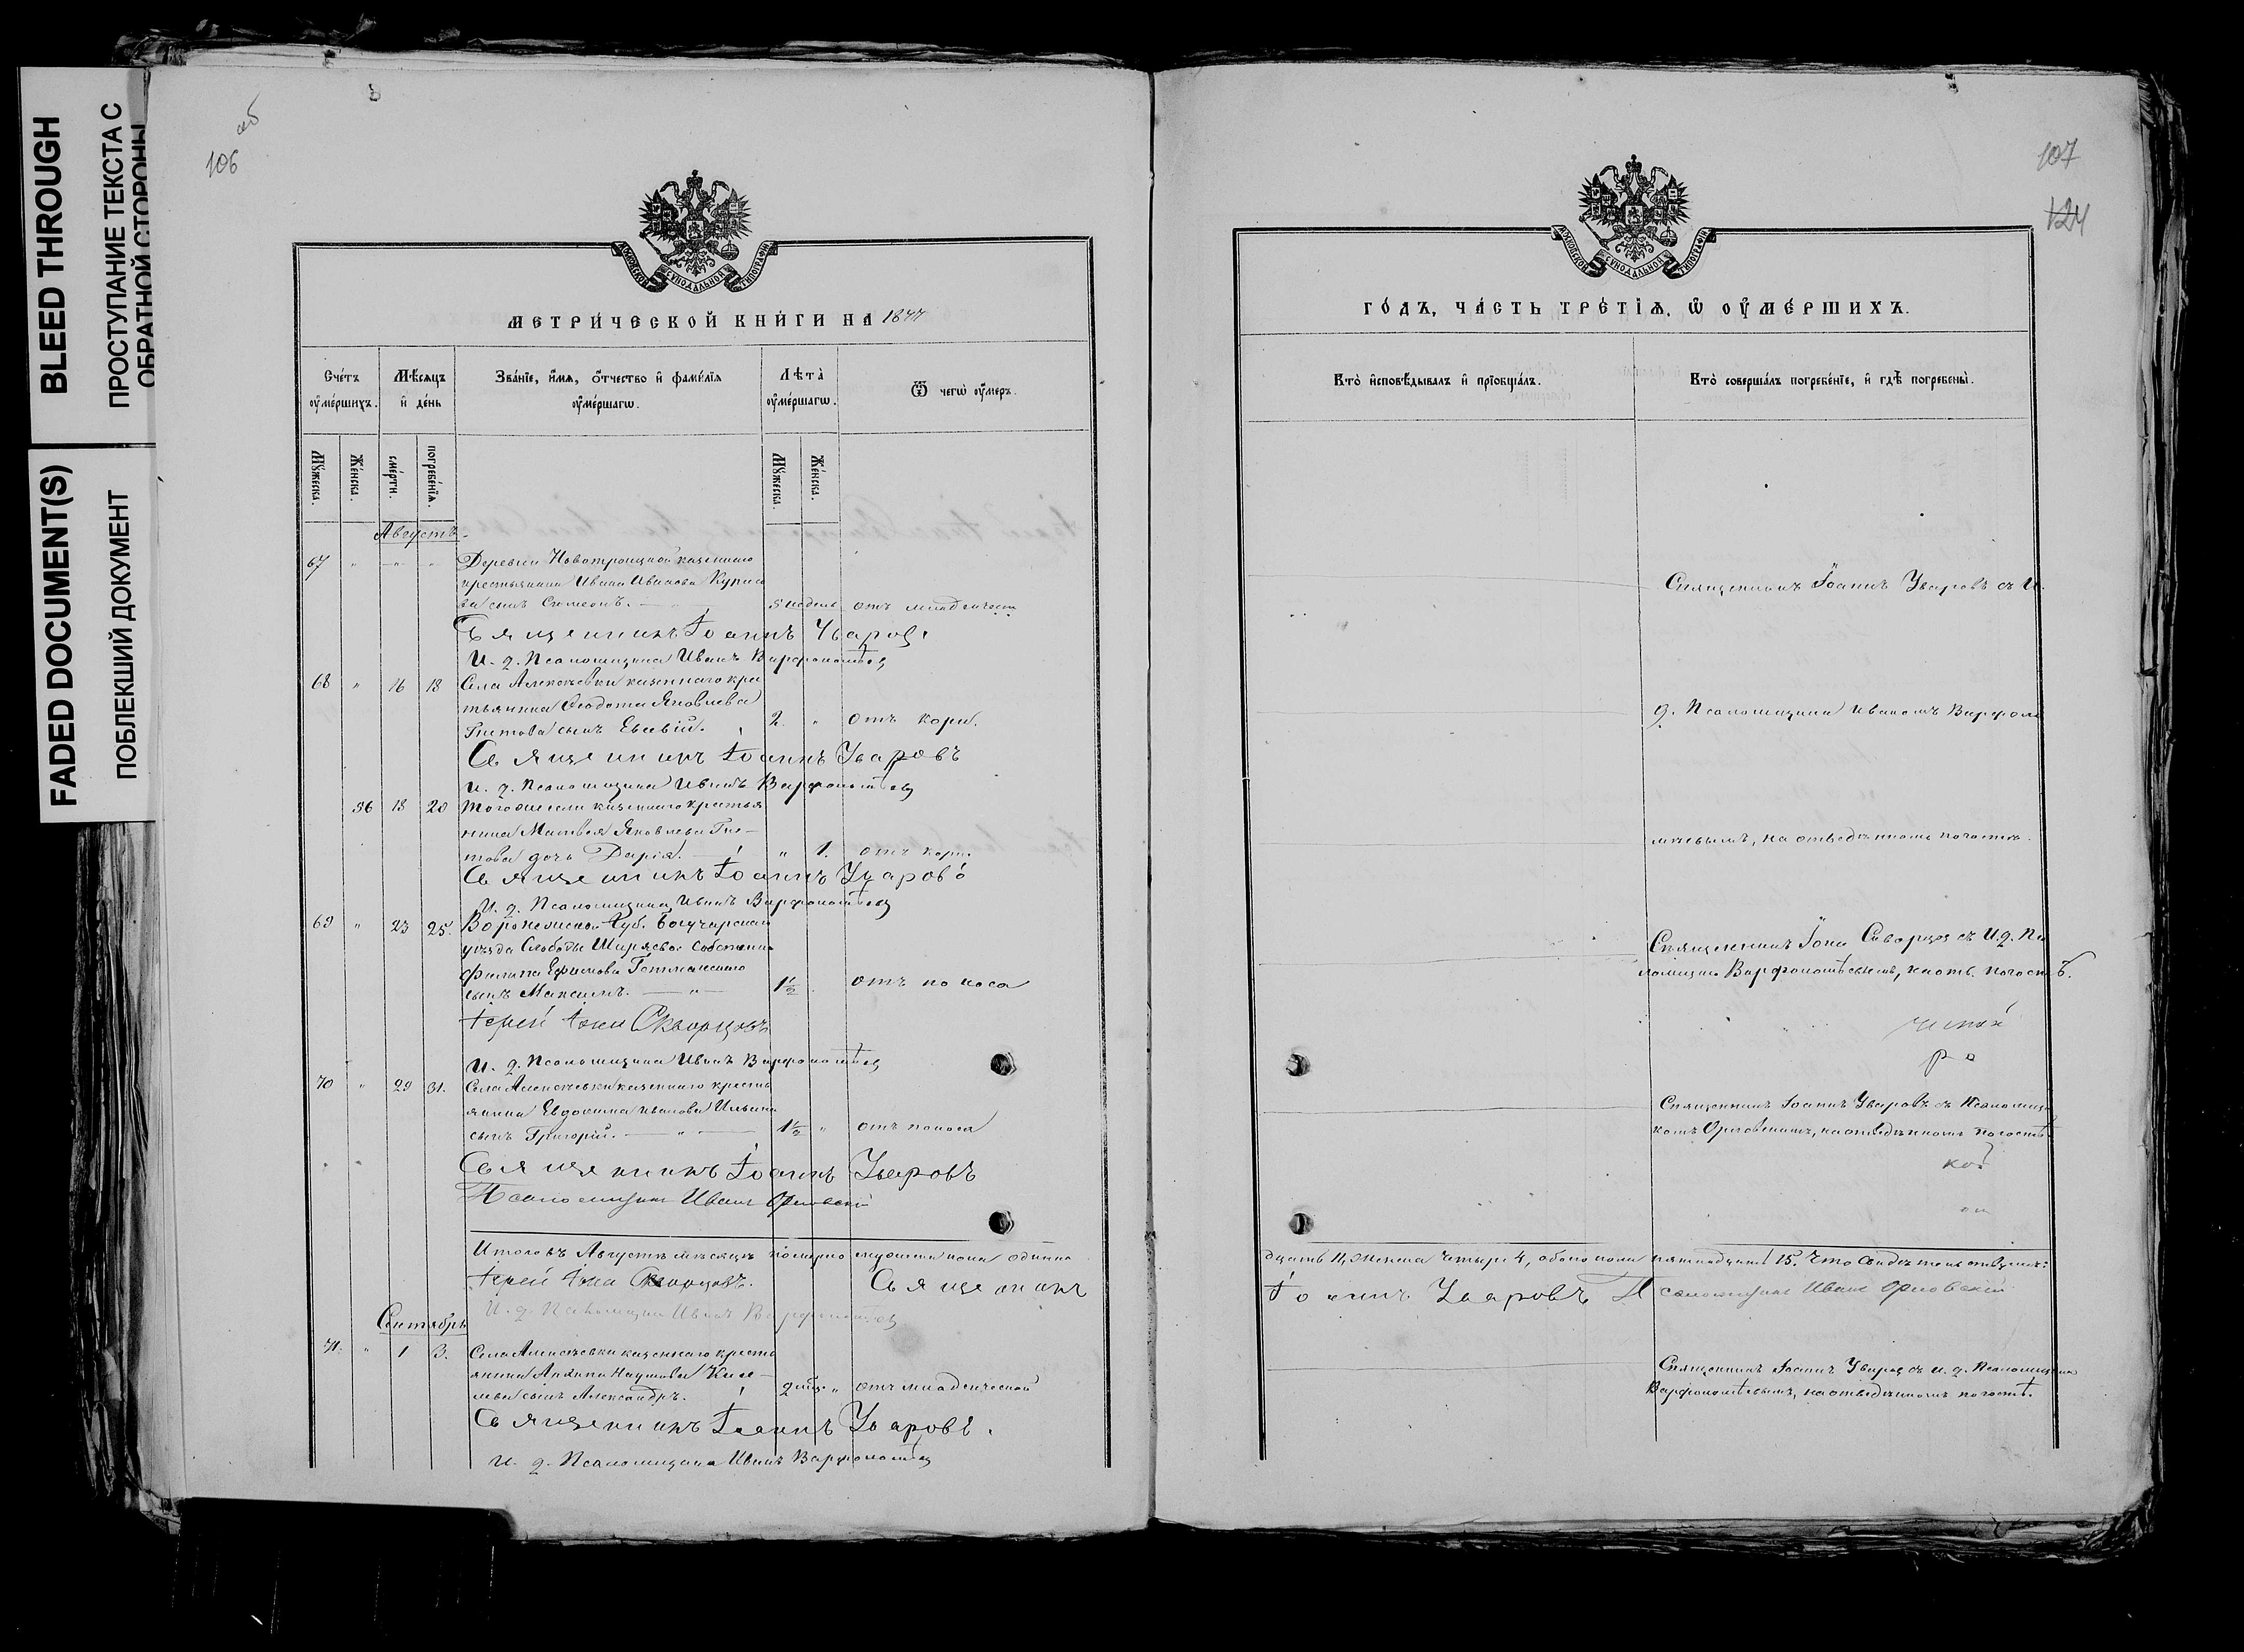 BLEED THROUGH
ПРОСТУПАНИЕ ТЕКСТА С
ОБРАТНОЙ СТОРОНЫ
FADED DOCUMENT(S)
ПОБЛЕКШИЙ ДОКУМЕНТ
об
106
МОСКОВСКОЙ СѴНОДАЛЬНОЙ ТИПОГРАФІИ
МЕТРИ́ЧЕСКОЙ КНИ́ГИ НА 1877
Сче́тъ оу҆ме́ршихъ.
Мѣ́сяцъ и҆ де́нь
Зва́нїе, и҆́мѧ, ѻ҆́тчество и҆ фамѝлїѧ оу҆ме́ршагѡ.
Лѣта̀ оу҆ме́ршагѡ.
Ѿ чегѡ̀ оу҆́меръ.
Мꙋ́жеска.
Же́нска.
сме́рти.
погребе́нїѧ.
Мꙋ́жеска.
Же́нска.
Августъ.
67 " " " Деревни Новотроицкой казеннаго
крестьянина Ивана Иванова
сынъ Симеонъ. 5 недель отъ младенческ
Священникъ Іоаннъ Уваровъ
И. д. Псаломщика Иванъ Варфоломѣевъ
68 " 16 18 Села Алексѣевки казеннаго кре
тьянина Ѳеодота Яковлева
сынъ Евсевій. 2. " отъ кори.
Священникъ Іоаннъ Уваровъ
И. д. Псаломщика Иванъ Варфоломѣевъ
36 18 20 Тогоже села казеннаго крестья
нина Матвея Яковлева
това дочь Дарія. " 1. отъ кори.
Священникъ Іоаннъ Уваровъ
И. д. Псаломщика Иванъ Варфоломѣевъ
69 " 23 25. Воронежской Губ. Богучарскаго
уѣзда Слободы Ширяево
Филипа Ефимова
сынъ Максимъ. " 1½ отъ поноса
Іерей Іона Скворцовъ
И. д. Псаломщика Иванъ Варфоломѣевъ
70 " 29 31. Села Алексѣевки казеннаго кресть
янина Евдокима Иванова Ильина
сынъ Григорій. " 1½ " отъ поноса
Священникъ Іоаннъ Уваровъ
Псаломщикъ Иванъ Орловскій
Итого въ Августѣ мѣсяцѣ померло мужеска пола одинна
Іерей Іона Скворцовъ. Священникъ
И. д. Псаломщика Иванъ Варфоломѣевъ
Сентябрь
71. " 1 3. Села Алексѣевки казеннаго кресть
янина Наумова
сынъ Александръ. 2 мѣс. " отъ младенческой
Священникъ Іоаннъ Уваровъ.
И. д. Псаломщика Иванъ Варфоломѣевъ
107
124
МОСКОВСКОЙ СѴНОДАЛЬНОЙ ТИПОГРАФІИ
ГО́ДЪ, ЧА́СТЬ ТРЕ́ТЇѦ, Ѡ҆ ОУ҆МЕ́РШИХЪ.
Кто̀ и҆сповѣ́дывалъ и҆ прїѡбща́лъ.
Кто̀ соверша́лъ погребе́нїе, и҆ гдѣ̀ погребены̀.
Священникъ Іоаннъ Уваровъ съ И.
д. Псаломщика Иваномъ Варфоло
мѣевымъ, на отведѣнномъ погостѣ.
Священникъ Іона Скворцовъ съ И. д. Пса
ломщика Варфоломѣевымъ, на отв. погостѣ.
Священникъ Іоаннъ Уваровъ съ Псаломщи
комъ Орловскимъ, на отведѣнномъ погостѣ.
дцать 11, женска четыре 4, обоего пола пятнадцать 15. Что
Іоаннъ Уваровъ Псаломщикъ Иванъ Орловскій
Священникъ Іоаннъ Уваровъ съ и. д. Псаломщика
Варфоломѣевымъ, на отведѣнномъ погостѣ.